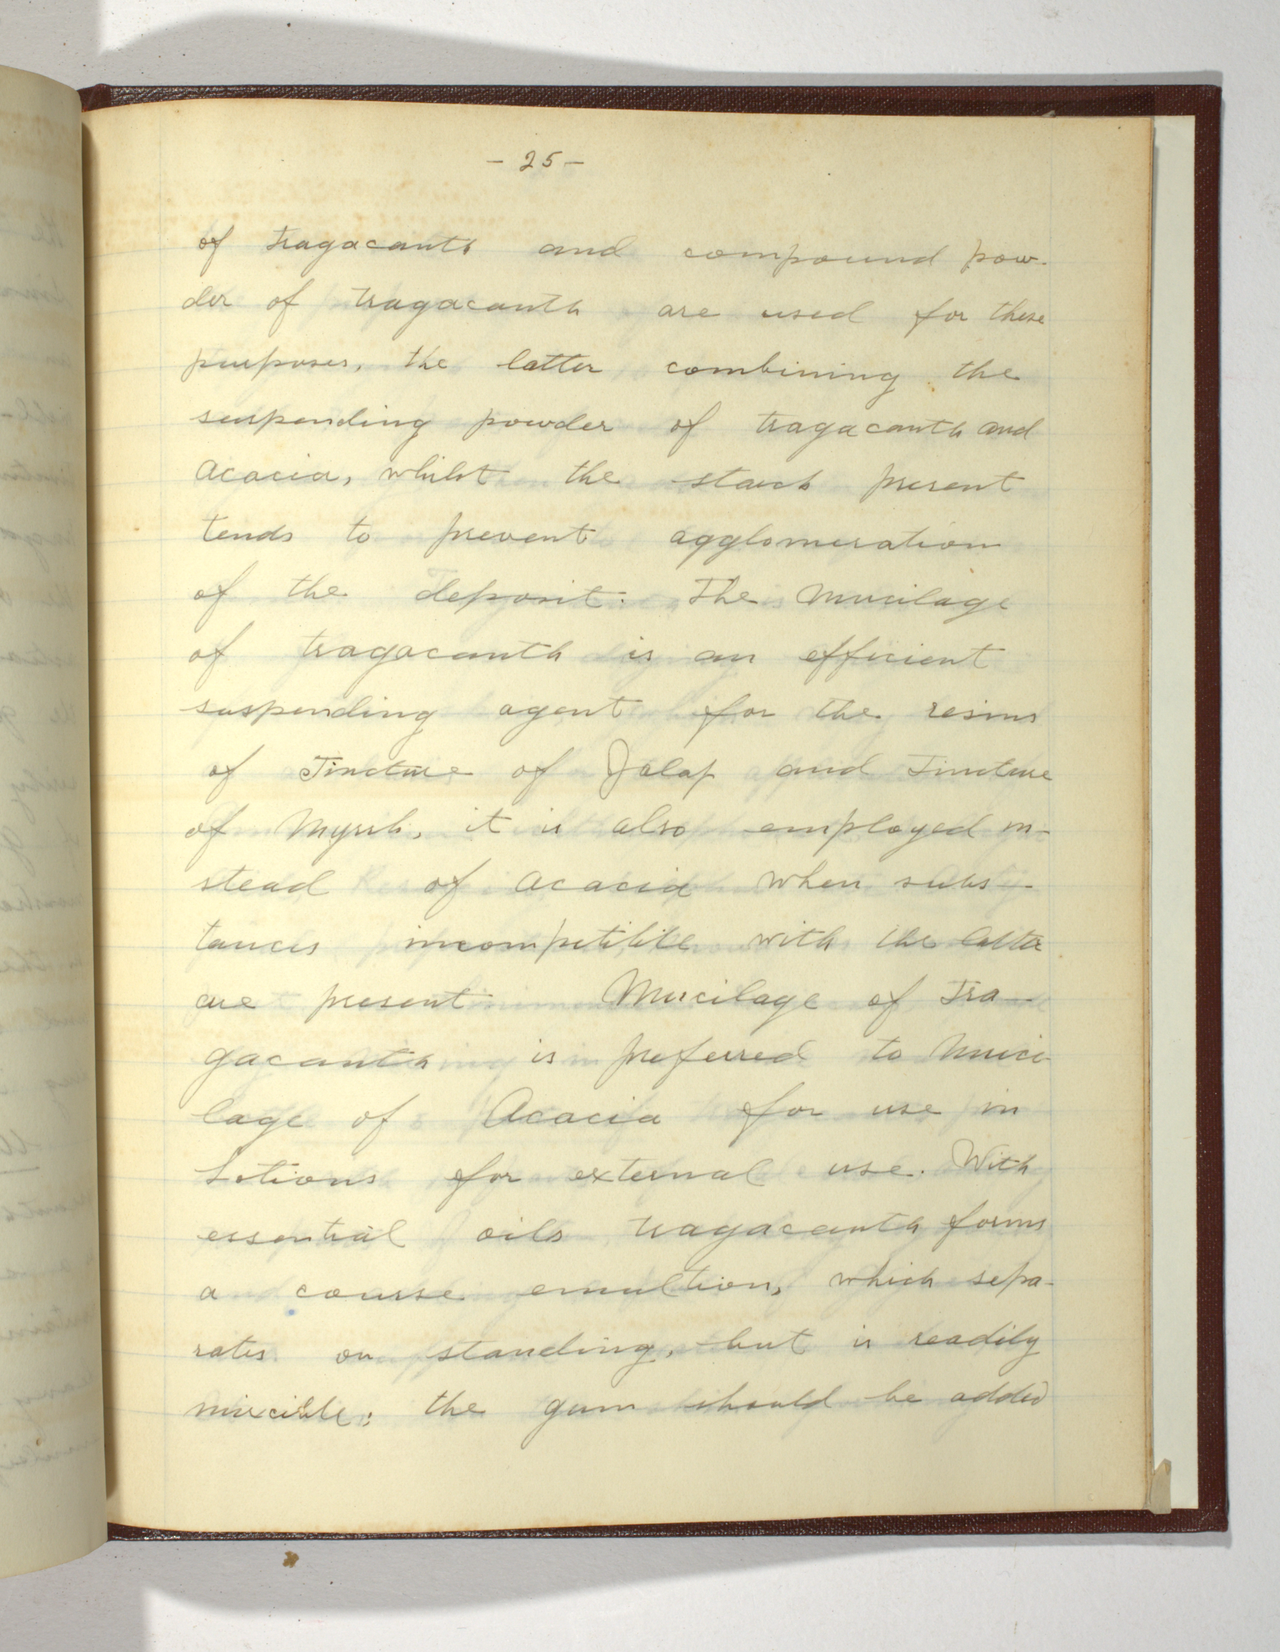 - 25 -
of tragacanth and compound pow-
der of tragacanth are used for these
purposes, the latter combining the
suspending powder of tragacanth and
acacia, whilst the starch present
tends to prevent agglomeration
of the deposit. The Mucilage
of tragacanth is an efficient
suspending agent for the resins
of Tincture of Jalap and Tincture
of Myrrh, it is also employed in-
stead of acacia when subs-
tances incompetitible with the latter
are present. Mucilage of Tra-
gacanth is preferred to Muci-
lage of Acacia for use in
Lotions for external use. With
essential oils tragacanth forms
a course emultion, which sepa-
rates on standing, but is readily
mixcible; the gum should be added